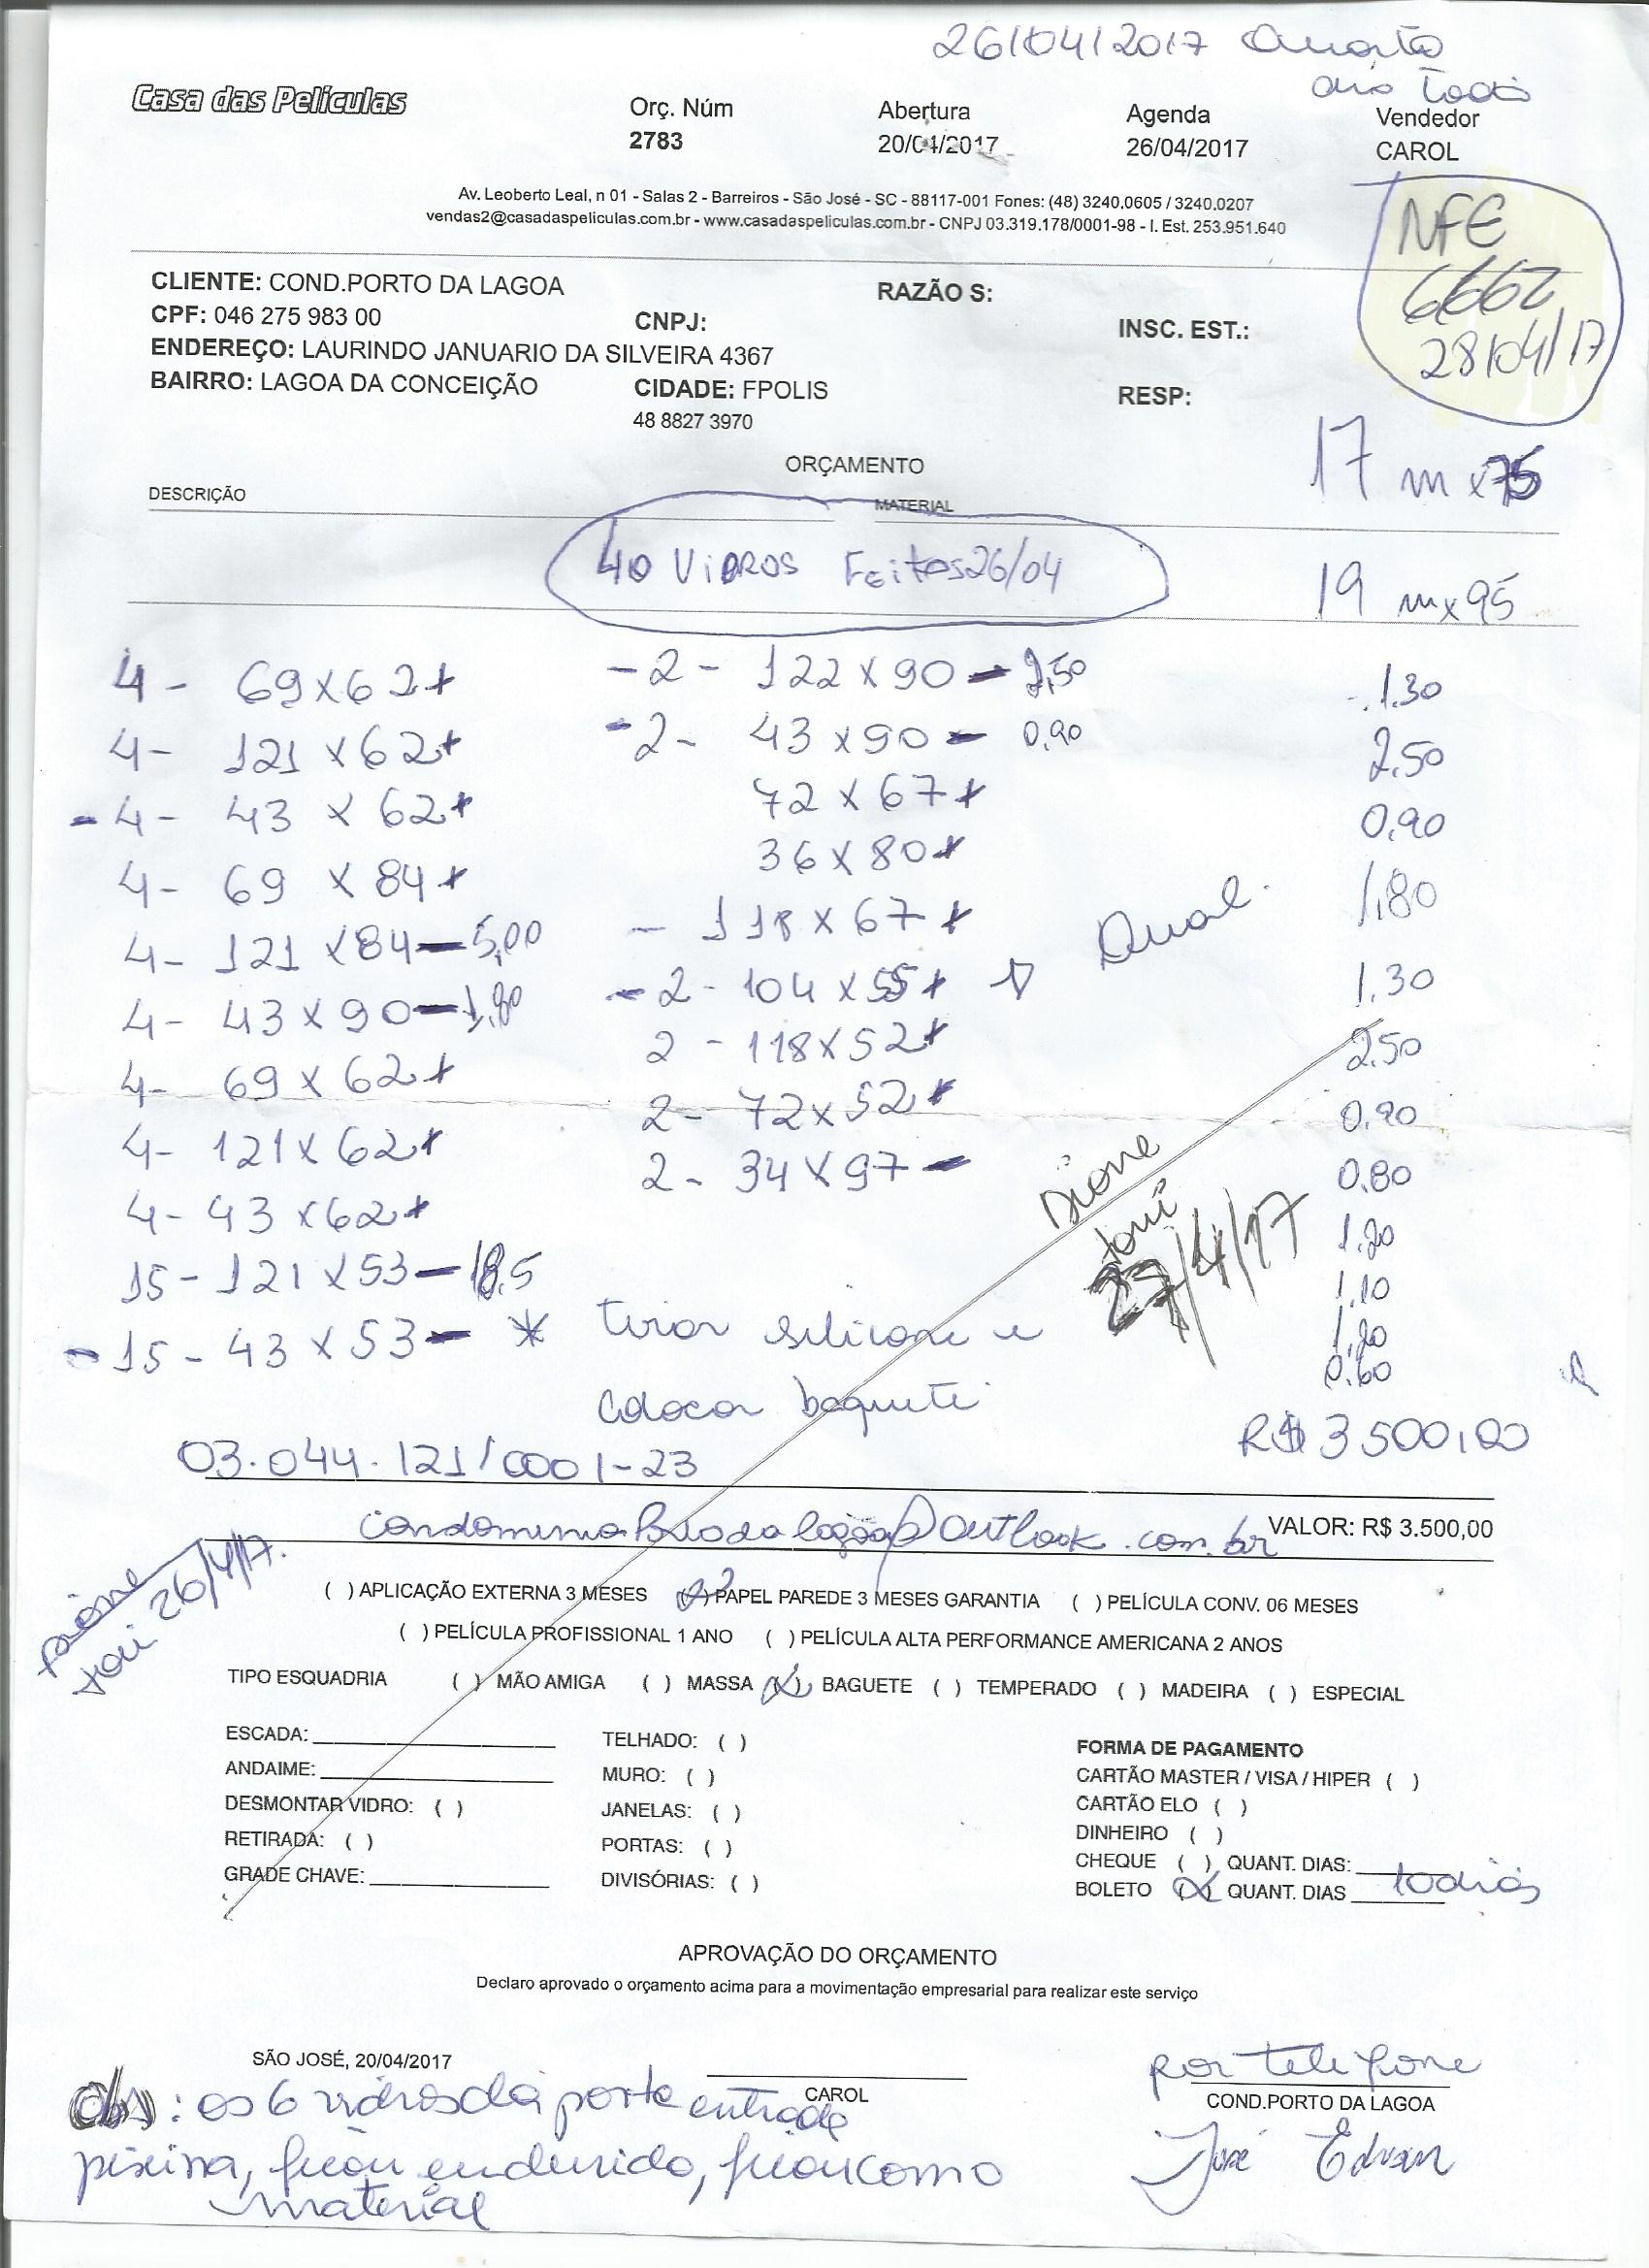 26/04/2017 Quarta
dia todo
Casa das Películas
Orç. Núm Abertura Agenda Vendedor
2783 20/04/2017 26/04/2017 CAROL
Av. Leoberto Leal, n 01 - Salas 2 - Barreiros - São José - SC - 88117-001 Fones: (48) 3240.0605 / 3240.0207
vendas2@casadaspeliculas.com.br - www.casadaspeliculas.com.br - CNPJ 03.319.178/0001-98 - I. Est. 253.951.640
NFE
6662
28/04/17
CLIENTE: COND.PORTO DA LAGOA RAZÃO S:
CPF: 046 275 983 00 CNPJ: INSC. EST.:
ENDEREÇO: LAURINDO JANUARIO DA SILVEIRA 4367
BAIRRO: LAGOA DA CONCEIÇÃO CIDADE: FPOLIS RESP:
48 8827 3970
ORÇAMENTO
17 m x 75
DESCRIÇÃO MATERIAL
40 VIDROS Feitos 26/04
19 m x 95
4 - 69 x 62 + - 2 - 122 x 90 - 2,50 1.30
4 - 121 x 62 + - 2 - 43 x 90 - 0,90 2.50
- 4 - 43 x 62 + 72 x 67 + 0.90
4 - 69 x 84 + 36 x 80 + 1.80
4 - 121 x 84 - 5,00 - 118 x 67 + Dual. 1.30
4 - 43 x 90 - 1,80 - 2 - 104 x 55 + 2.50
4 - 69 x 62 + 2 - 118 x 52 + 0.90
4 - 121 x 62 + 2 - 72 x 52 + 0.80
4 - 43 x 62 + 2 - 34 x 97 - 1.20
Dione
Joni
27/4/17
15 - 121 x 53 - 18.5 1.10
- 15 - 43 x 53 - * tirar silicone e 1.20
0.60
colocar baguete
R$ 3500,00
03.044.121/0001-23
@outlook.com.br VALOR: R$ 3.500,00
Dione
Joni 26/4/17.
( ) APLICAÇÃO EXTERNA 3 MESES ( ) PAPEL PAREDE 3 MESES GARANTIA ( ) PELÍCULA CONV. 06 MESES
( ) PELÍCULA PROFISSIONAL 1 ANO ( ) PELÍCULA ALTA PERFORMANCE AMERICANA 2 ANOS
TIPO ESQUADRIA ( ) MÃO AMIGA ( ) MASSA (X) BAGUETE ( ) TEMPERADO ( ) MADEIRA ( ) ESPECIAL
ESCADA: TELHADO: ( ) FORMA DE PAGAMENTO
ANDAIME: MURO: ( ) CARTÃO MASTER / VISA / HIPER ( )
DESMONTAR VIDRO: ( ) JANELAS: ( ) CARTÃO ELO ( )
RETIRADA: ( ) PORTAS: ( ) DINHEIRO ( )
GRADE CHAVE: DIVISÓRIAS: ( ) CHEQUE ( ) QUANT. DIAS:
BOLETO (X) QUANT. DIAS 10 dias
APROVAÇÃO DO ORÇAMENTO
Declaro aprovado o orçamento acima para a movimentação empresarial para realizar este serviço
SÃO JOSÉ, 20/04/2017
por telefone
CAROL COND.PORTO DA LAGOA
obs: os 6 vidros da porta entrada
piscina, ficou com o
material
José Edvan